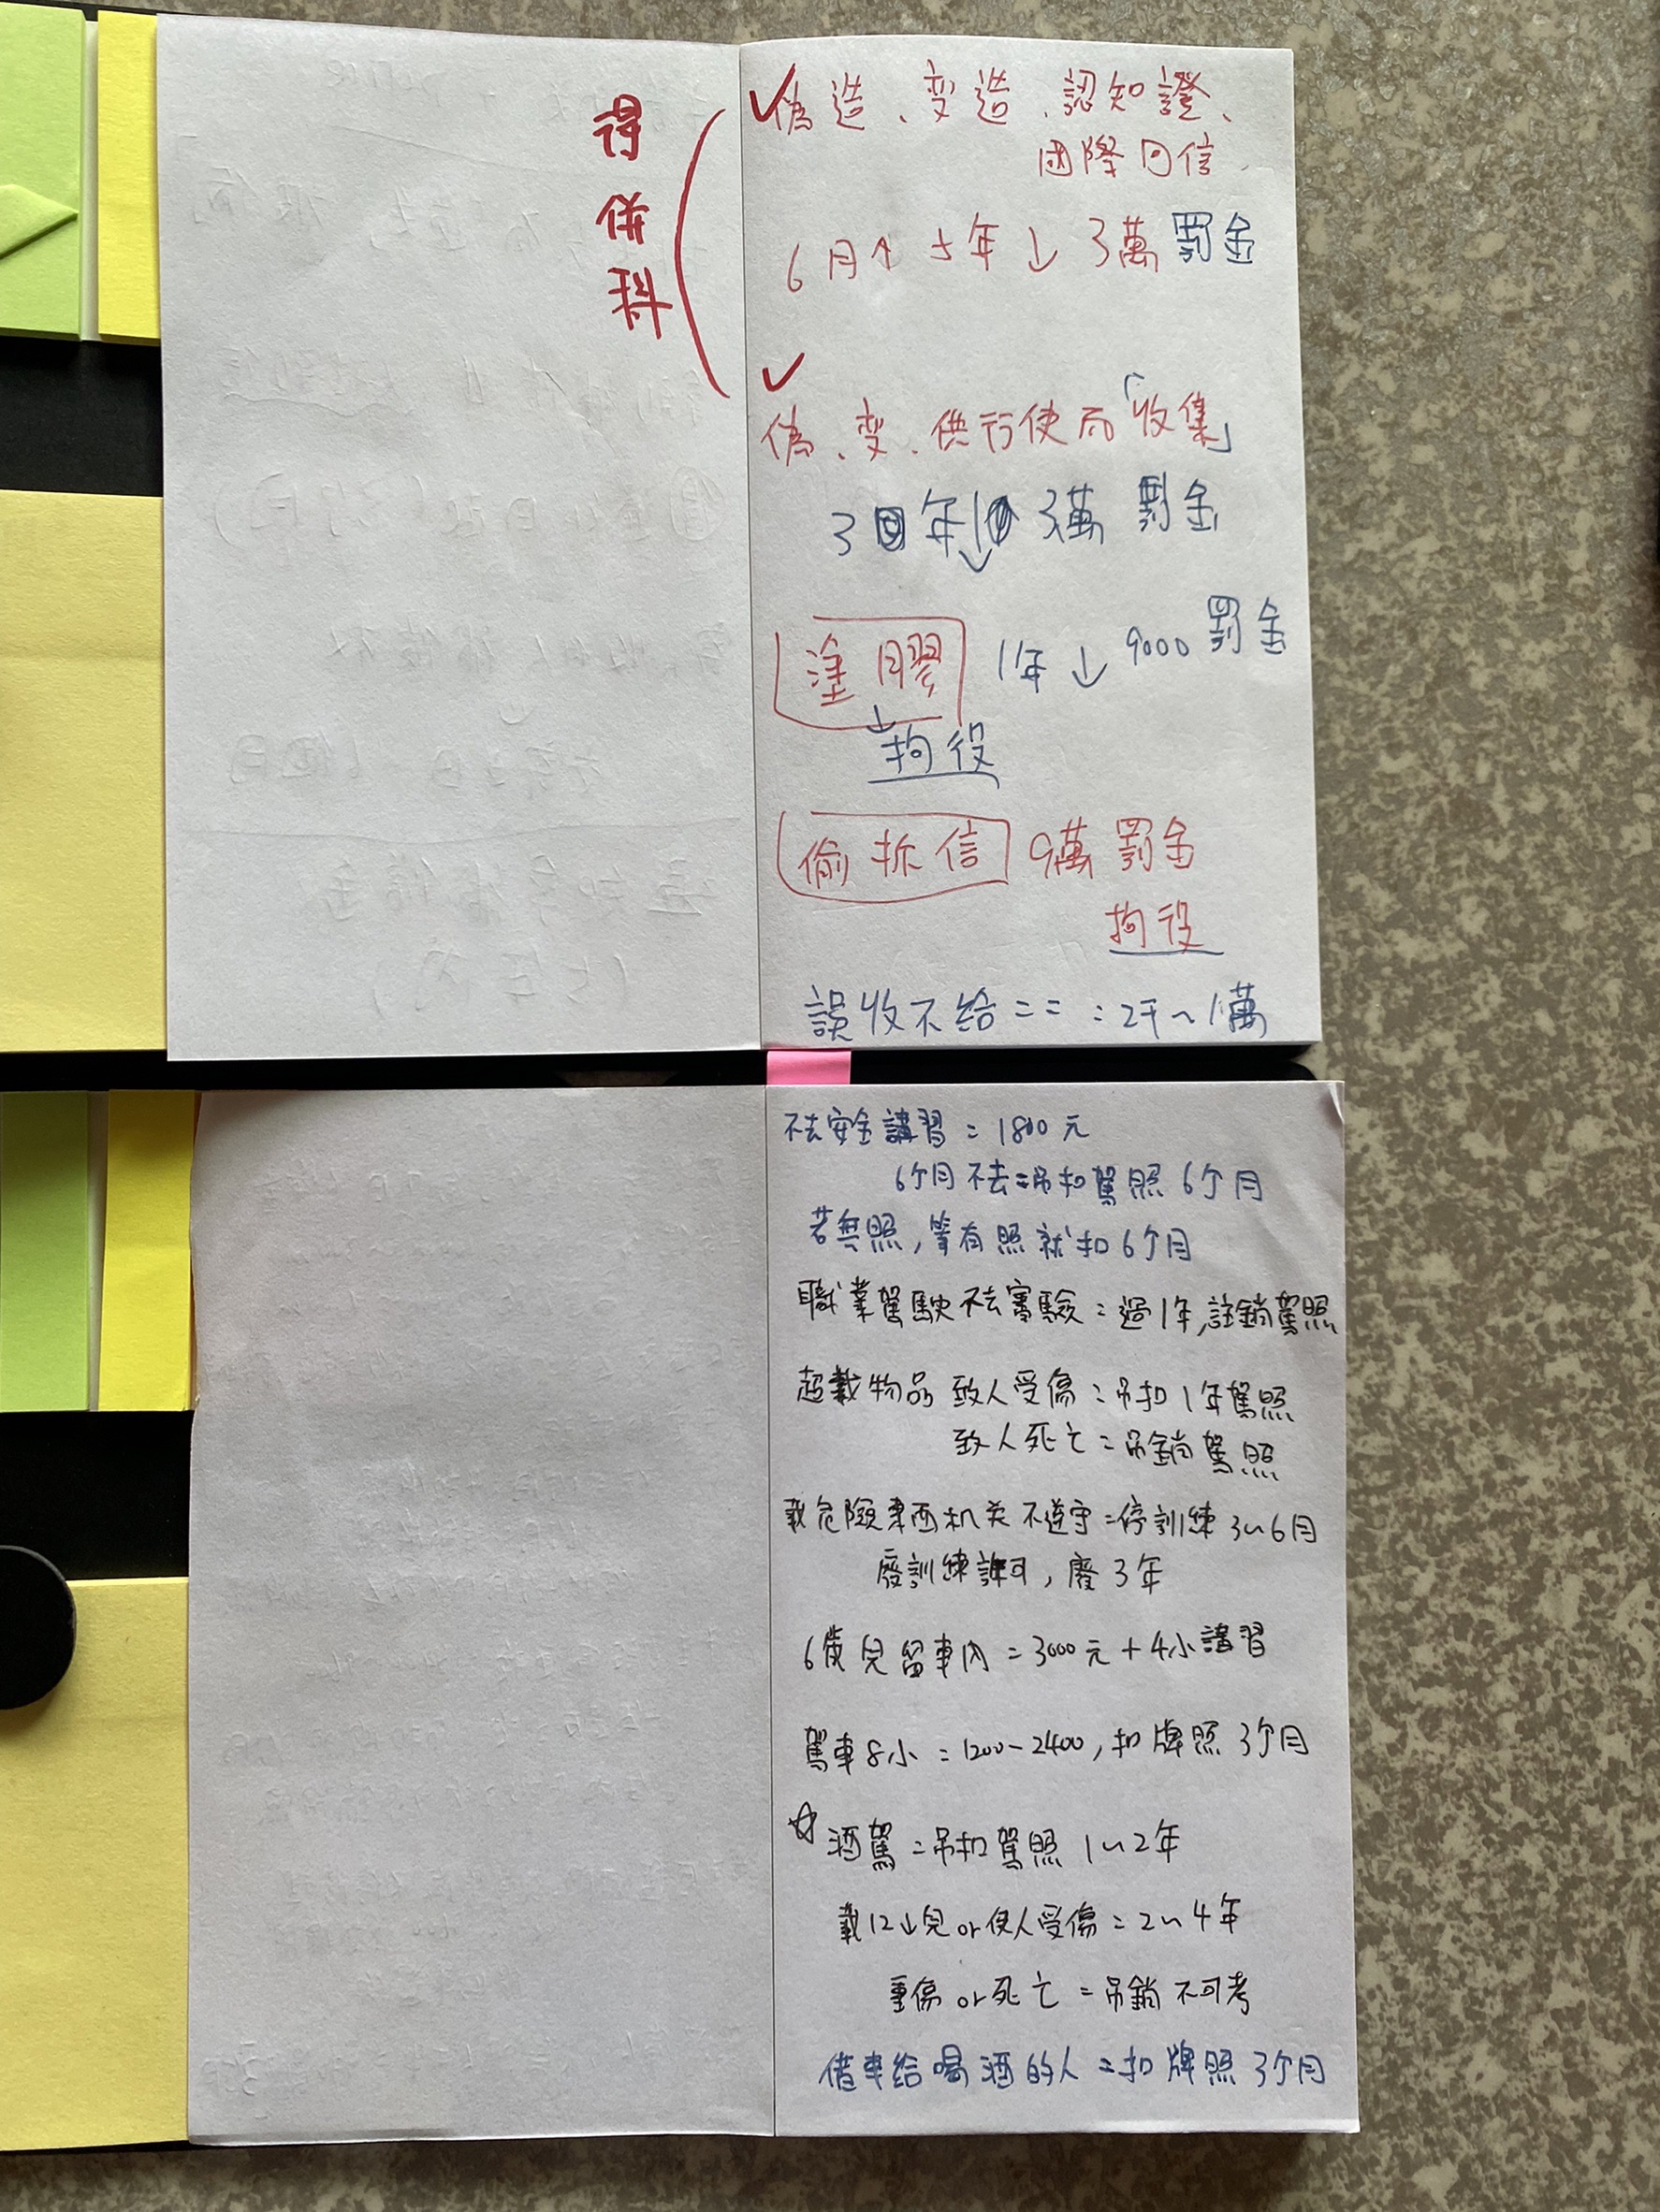 得併科
✓偽造、变造、認知證、
國際回信
6月↑ 5年↓ 3萬 罰金
✓
偽、变、供行使而「收集」
3年↓ 3萬 罰金
塗膠 1年↓ 9000 罰金
↓
拘役
偷拆信 9萬 罰金
拘役
誤收不给== : 2千~1萬
不去安全講習 = 1800元
6个月不去=吊扣駕照6个月
若無照,等有照就扣6个月
職業駕駛不去審驗=過1年,註銷駕照
超載物品 致人受傷=吊扣1年駕照
致人死亡=吊銷駕照
載危險東西机关不遵守=停訓練3~6月
廢訓練許可,廢3年
6歲兒留車內=3000元+4小講習
駕車8小=1200-2400,扣牌照3个月
☆酒駕=吊扣駕照1~2年
載12↓兒or使人受傷=2~4年
重傷or死亡=吊銷不可考
借車给喝酒的人=扣牌照3个月